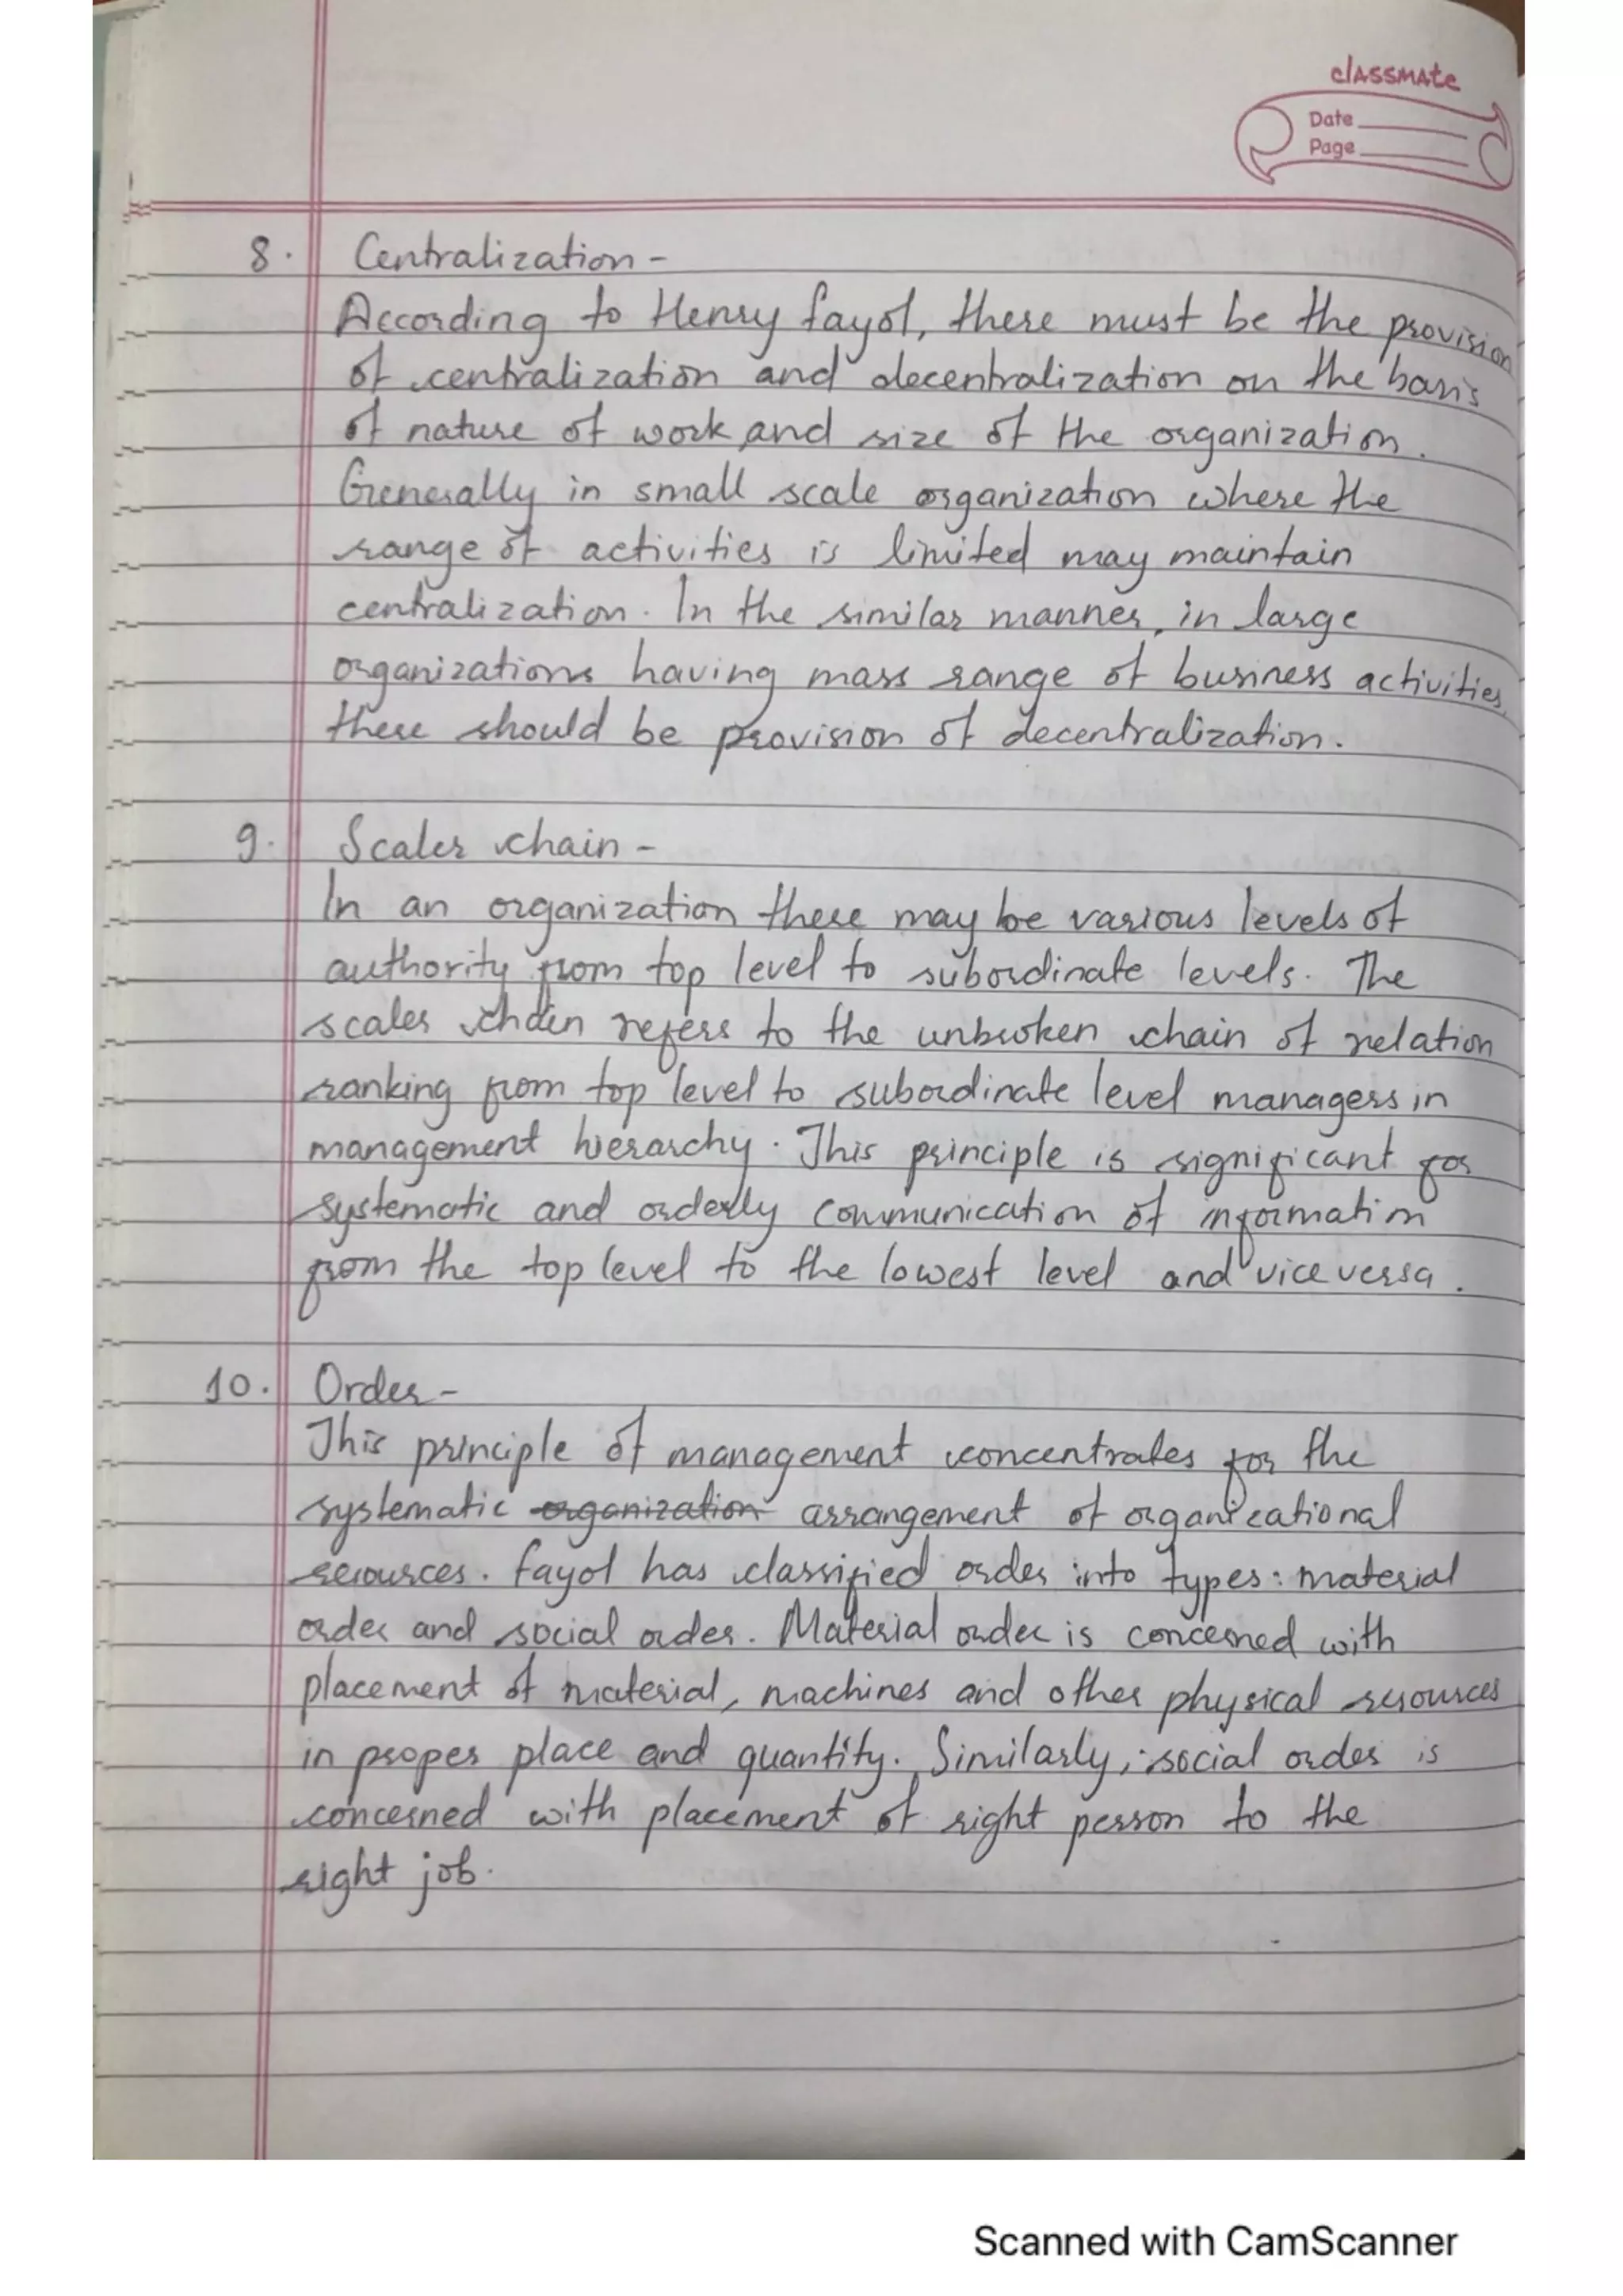 classmate
Date
Page
8. Centralization -
According to Henry fayol, there must be the provision
of centralization and decentralization on the basis
of nature of work and size of the organization.
Generally in small scale organization where the
range of activities is limited may maintain
centralization. In the similar manner, in large
organizations having mass range of business activities,
there should be provision of decentralization.
9. Scaler chain -
In an organization there may be various levels of
authority from top level to subordinate levels. The
scaler chain refers to the unbroken chain of relation
ranking from top level to subordinate level managers in
management hierarchy. This principle is significant for
systematic and orderly communication of information
from the top level to the lowest level and vice versa.
10. Order -
This principle of management concentrates for the
systematic organization arrangement of organizational
resources. Fayol has classified order into types: material
order and social order. Material order is concerned with
placement of material, machines and other physical resources
in proper place and quantity. Similarly, social order is
concerned with placement of right person to the
right job.
Scanned with CamScanner